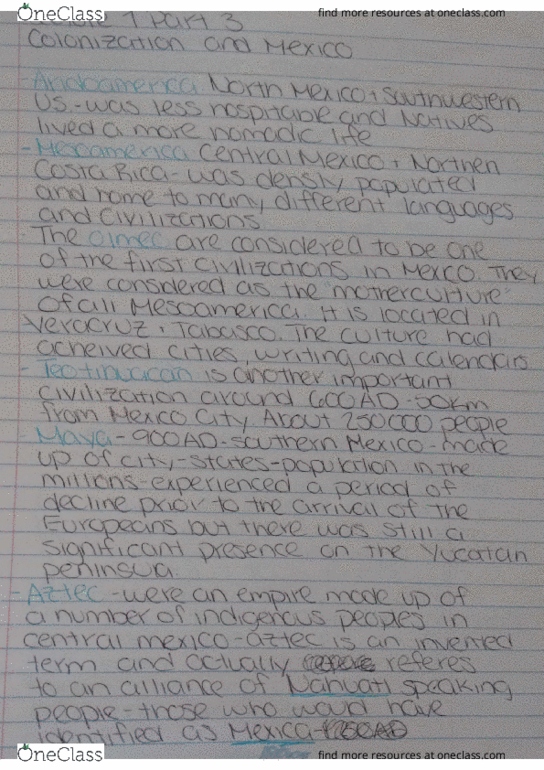 OneClass find more resources at oneclass.com
1 Part 3
Colonization and Mexico
- Aridoamerica North Mexico + Southwestern
US.-was less hospitable and Natives
lived a more nomadic life
- Mesoamerica Central Mexico + Northen
Costa Rica-was densly populated
and home to many different languages
and Civilizations
The olmec are considered to be one
of the first civilizations in Mexco. They
were considered as the "motherculture"
of all Mesoamerica. It is located in
Veracruz + Tabasco. The culture had
acheived cities, writing and calendars
- Teotihuacan is another important
civilization around 600 AD-50km
from Mexico City. About 250000 people
- Maya-900AD-southern Mexico-made
up of city-states-population in the
millions-experienced a period of
decline prior to the arrival of the
Europeans but there was still a
significant presence on the Yucatan
peninsula.
- Aztec-were an empire made up of
a number of indigenous peoples in
central mexico-aztec is an invented
term and actually referes
to an alliance of Nahuatl speaking
people-those who would have
identified as Mexica-
OneClass find more resources at oneclass.com